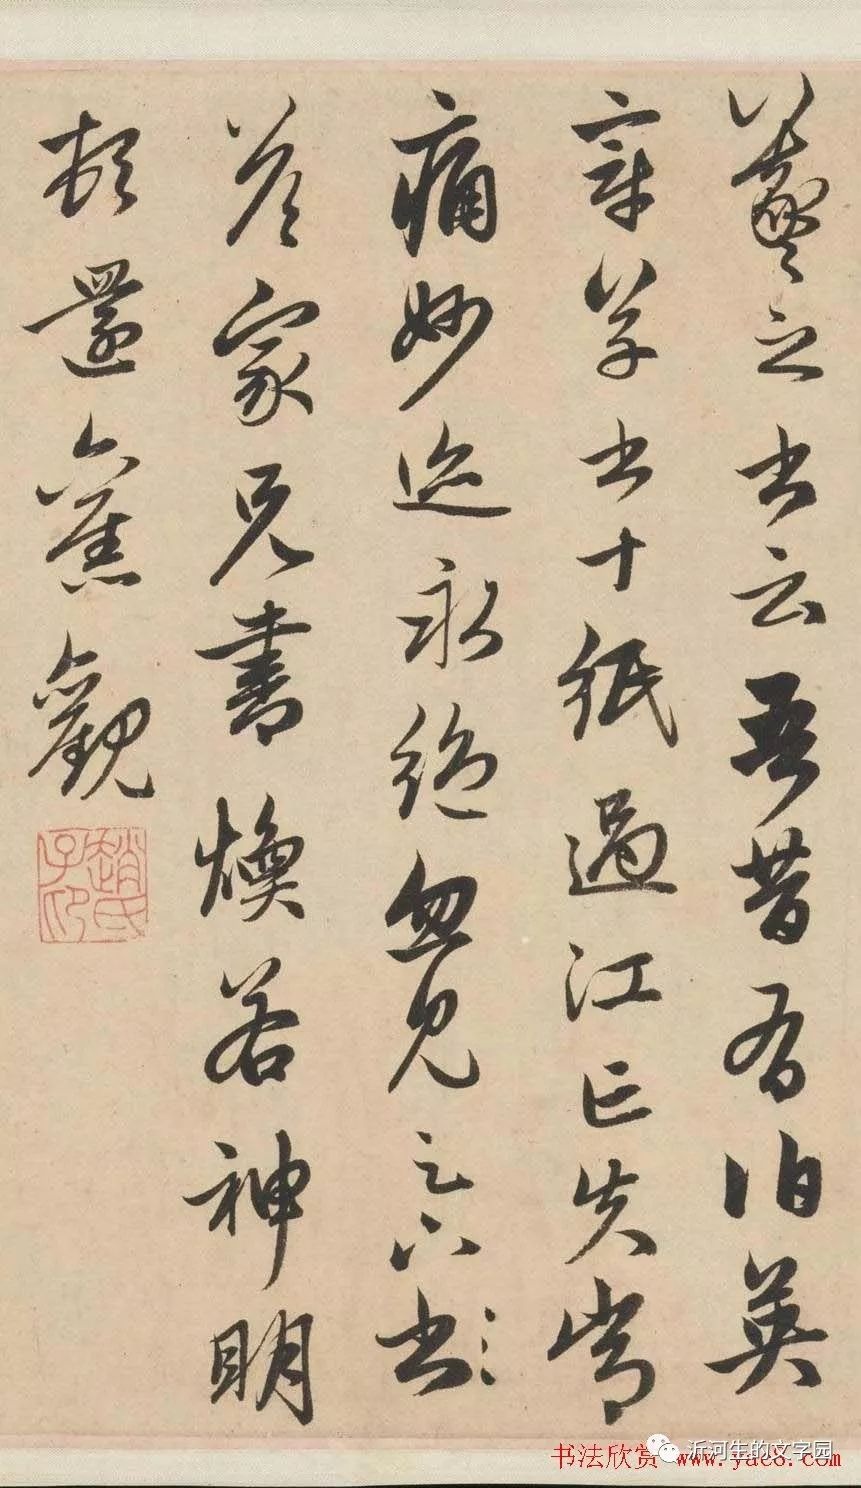 羲之書云吾昔有伯英
章草書十紙過江亡失常
痛妙迹永絶忽見足下書
答家兄書煥若神明
頓還舊觀
趙氏子昂
书法欣赏 www.yac8.com
沂河生的文字园